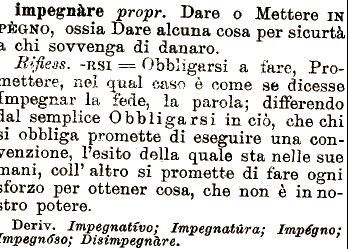 impegnàre propr. Dare o Mettere IN
PÈGNO, ossia Dare alcuna cosa per sicurtà
a chi sovvenga di danaro.
Rifless. -RSI = Obbligarsi a fare, Pro-
mettere, nel qual caso è come se dicesse
Impegnar la fede, la parola; differendo
dal semplice Obbligarsi in ciò, che chi
si obbliga promette di eseguire una con-
venzione, l'esito della quale sta nelle sue
mani, coll' altro si promette di fare ogni
sforzo per ottener cosa, che non è in no-
stro potere.
Deriv. Impegnatívo; Impegnatúra; Impégno;
Impegnóso; Disimpegnàre.